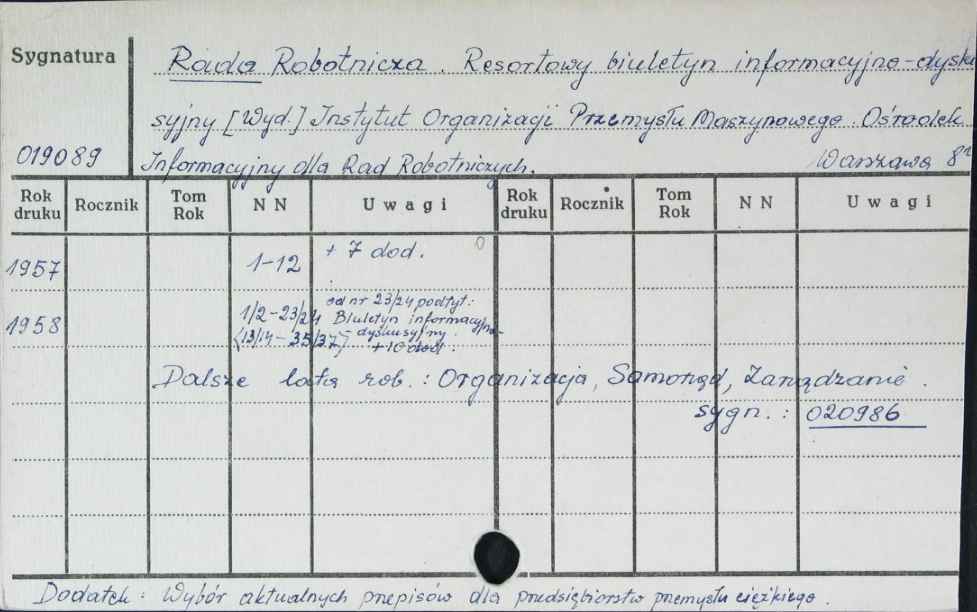 Sygnatura
Rada Robotnicza. Resortowy biuletyn informacyjno-dysku
syjny [Wyd.] Instytut Organizacji Przemysłu Maszynowego. Ośrodek
019089 Informacyjny dla Rad Robotniczych. Warszawa 8°
Rok druku Rocznik Tom Rok NN Uwagi Rok druku Rocznik Tom Rok NN Uwagi
1957 1-12 + 7 dod. 0
1958 1/2-23/24 od nr 23/24 podtyt.:
Biuletyn informacyjno-
(13/14-35/37) dyskusyjny
+ 10 dod.
Dalsze lata rob.: Organizacja, Samorząd, Zarządzanie.
sygn.: 020986
Dodatek: Wybór aktualnych przepisów dla przedsiębiorstw przemysłu ciężkiego.